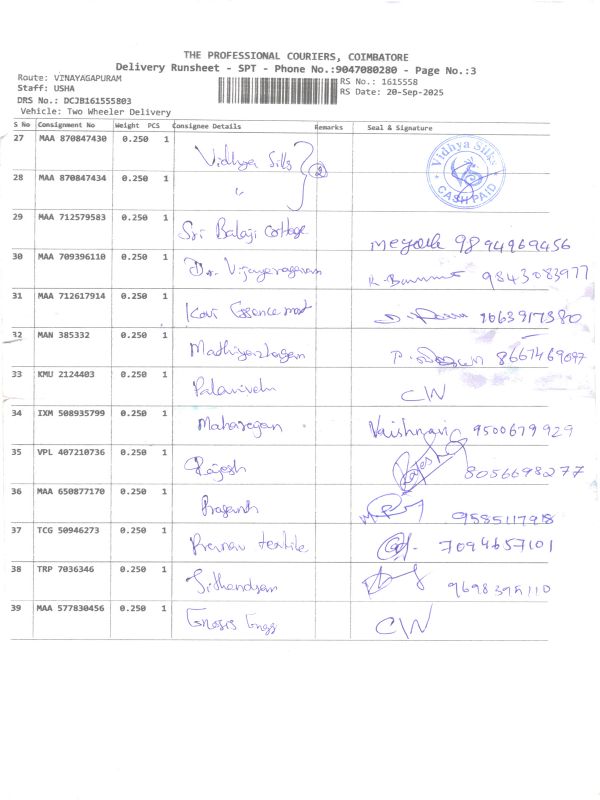 THE PROFESSIONAL COURIERS, COIMBATORE
Delivery Runsheet - SPT - Phone No.:9047080280 - Page No.:3
Route: VINAYAGAPURAM
RS No.: 1615558
Staff: USHA
RS Date: 20-Sep-2025
DRS No.: DCJB161555803
Vehicle: Two Wheeler Delivery
S No Consignment No Weight PCS Consignee Details Remarks Seal & Signature
27 MAA 870847430 0.250 1 Vidhya Silks 2 Vidhya Silks CASH PAID
28 MAA 870847434 0.250 1 "
29 MAA 712579583 0.250 1 Sri Balaji Cottage 9894969456
30 MAA 709396110 0.250 1 Dr. Vijayaragavan 9843083977
31 MAA 712617914 0.250 1 Kavi Essence mart
32 MAN 385332 0.250 1 8667469097
33 KMU 2124403 0.250 1 Palanivelu CW
34 IXM 508935799 0.250 1 Maharagan Vaishnavi 9500679929
35 VPL 407210736 0.250 1 Rajesh Rajesh 8056698277
36 MAA 650877170 0.250 1 Prasanth 9585117918
37 TCG 50946273 0.250 1 Pranav textile 7094657101
38 TRP 7036346 0.250 1 9698395110
39 MAA 577830456 0.250 1 Gnosis Engg CW